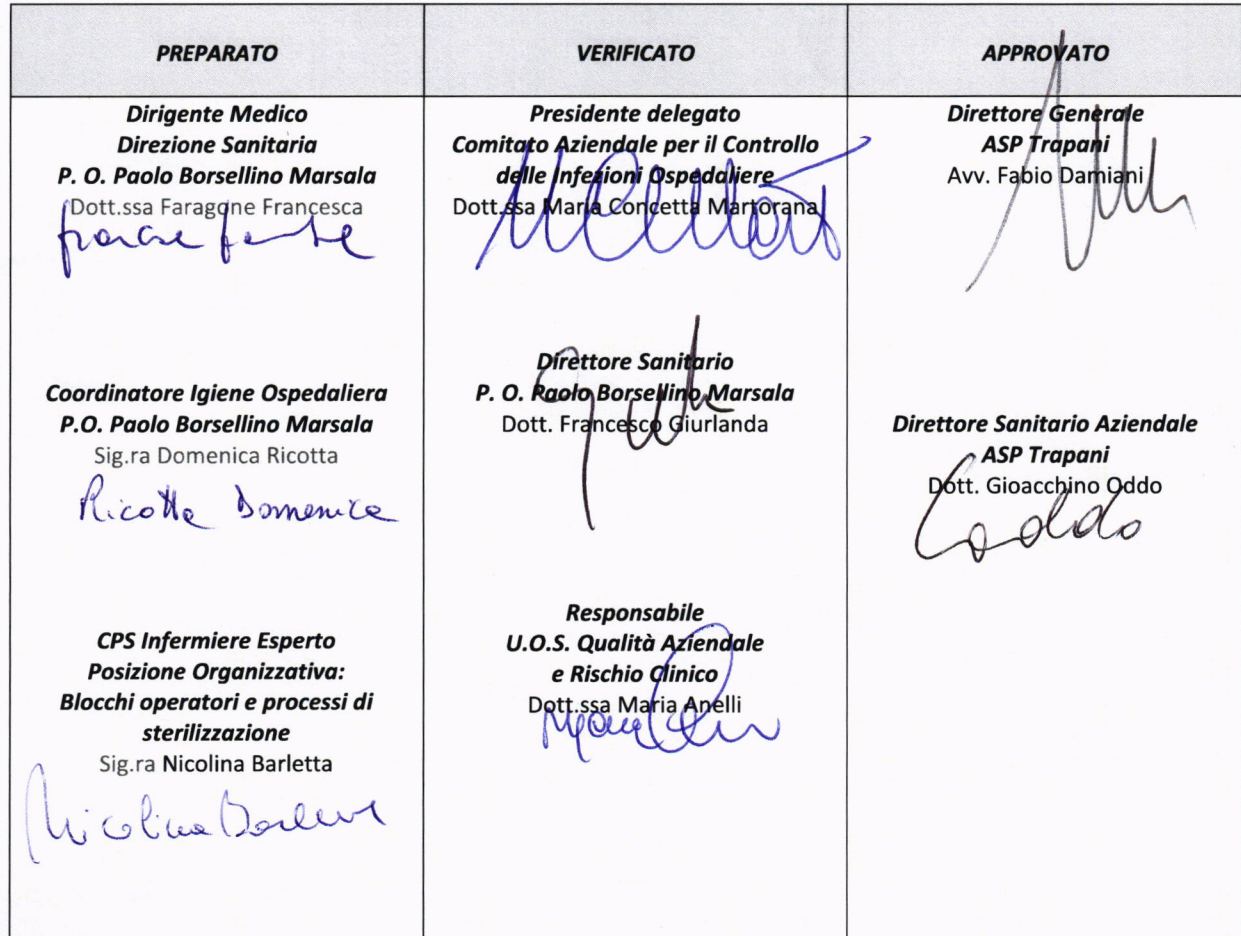 PREPARATO
Dirigente Medico
Direzione Sanitaria
P. O. Paolo Borsellino Marsala
Dott.ssa Faragone Francesca
Coordinatore Igiene Ospedaliera
P.O. Paolo Borsellino Marsala
Sig.ra Domenica Ricotta
Ricotta Domenica
CPS Infermiere Esperto
Posizione Organizzativa:
Blocchi operatori e processi di
sterilizzazione
Sig.ra Nicolina Barletta
Nicolina
VERIFICATO
Presidente delegato
Comitato Aziendale per il Controllo
delle Infezioni Ospedaliere
Dott.ssa Maria Concetta Martorana
Direttore Sanitario
P. O. Paolo Borsellino Marsala
Dott. Francesco Giurlanda
Responsabile
U.O.S. Qualità Aziendale
e Rischio Clinico
Dott.ssa Maria Anelli
APPROVATO
Direttore Generale
ASP Trapani
Avv. Fabio Damiani
Direttore Sanitario Aziendale
ASP Trapani
Dott. Gioacchino Oddo